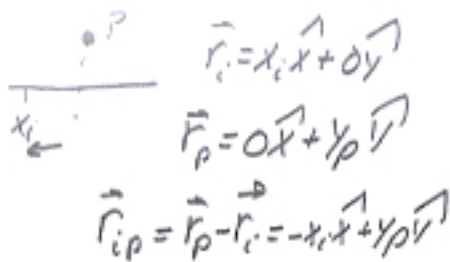 P
xᵢ
r⃗ᵢ = xᵢ x̂ + 0ŷ
r⃗ₚ = 0x̂ + yₚ ŷ
r⃗ᵢₚ = r⃗ₚ - r⃗ᵢ = -xᵢ x̂ + yₚ ŷ